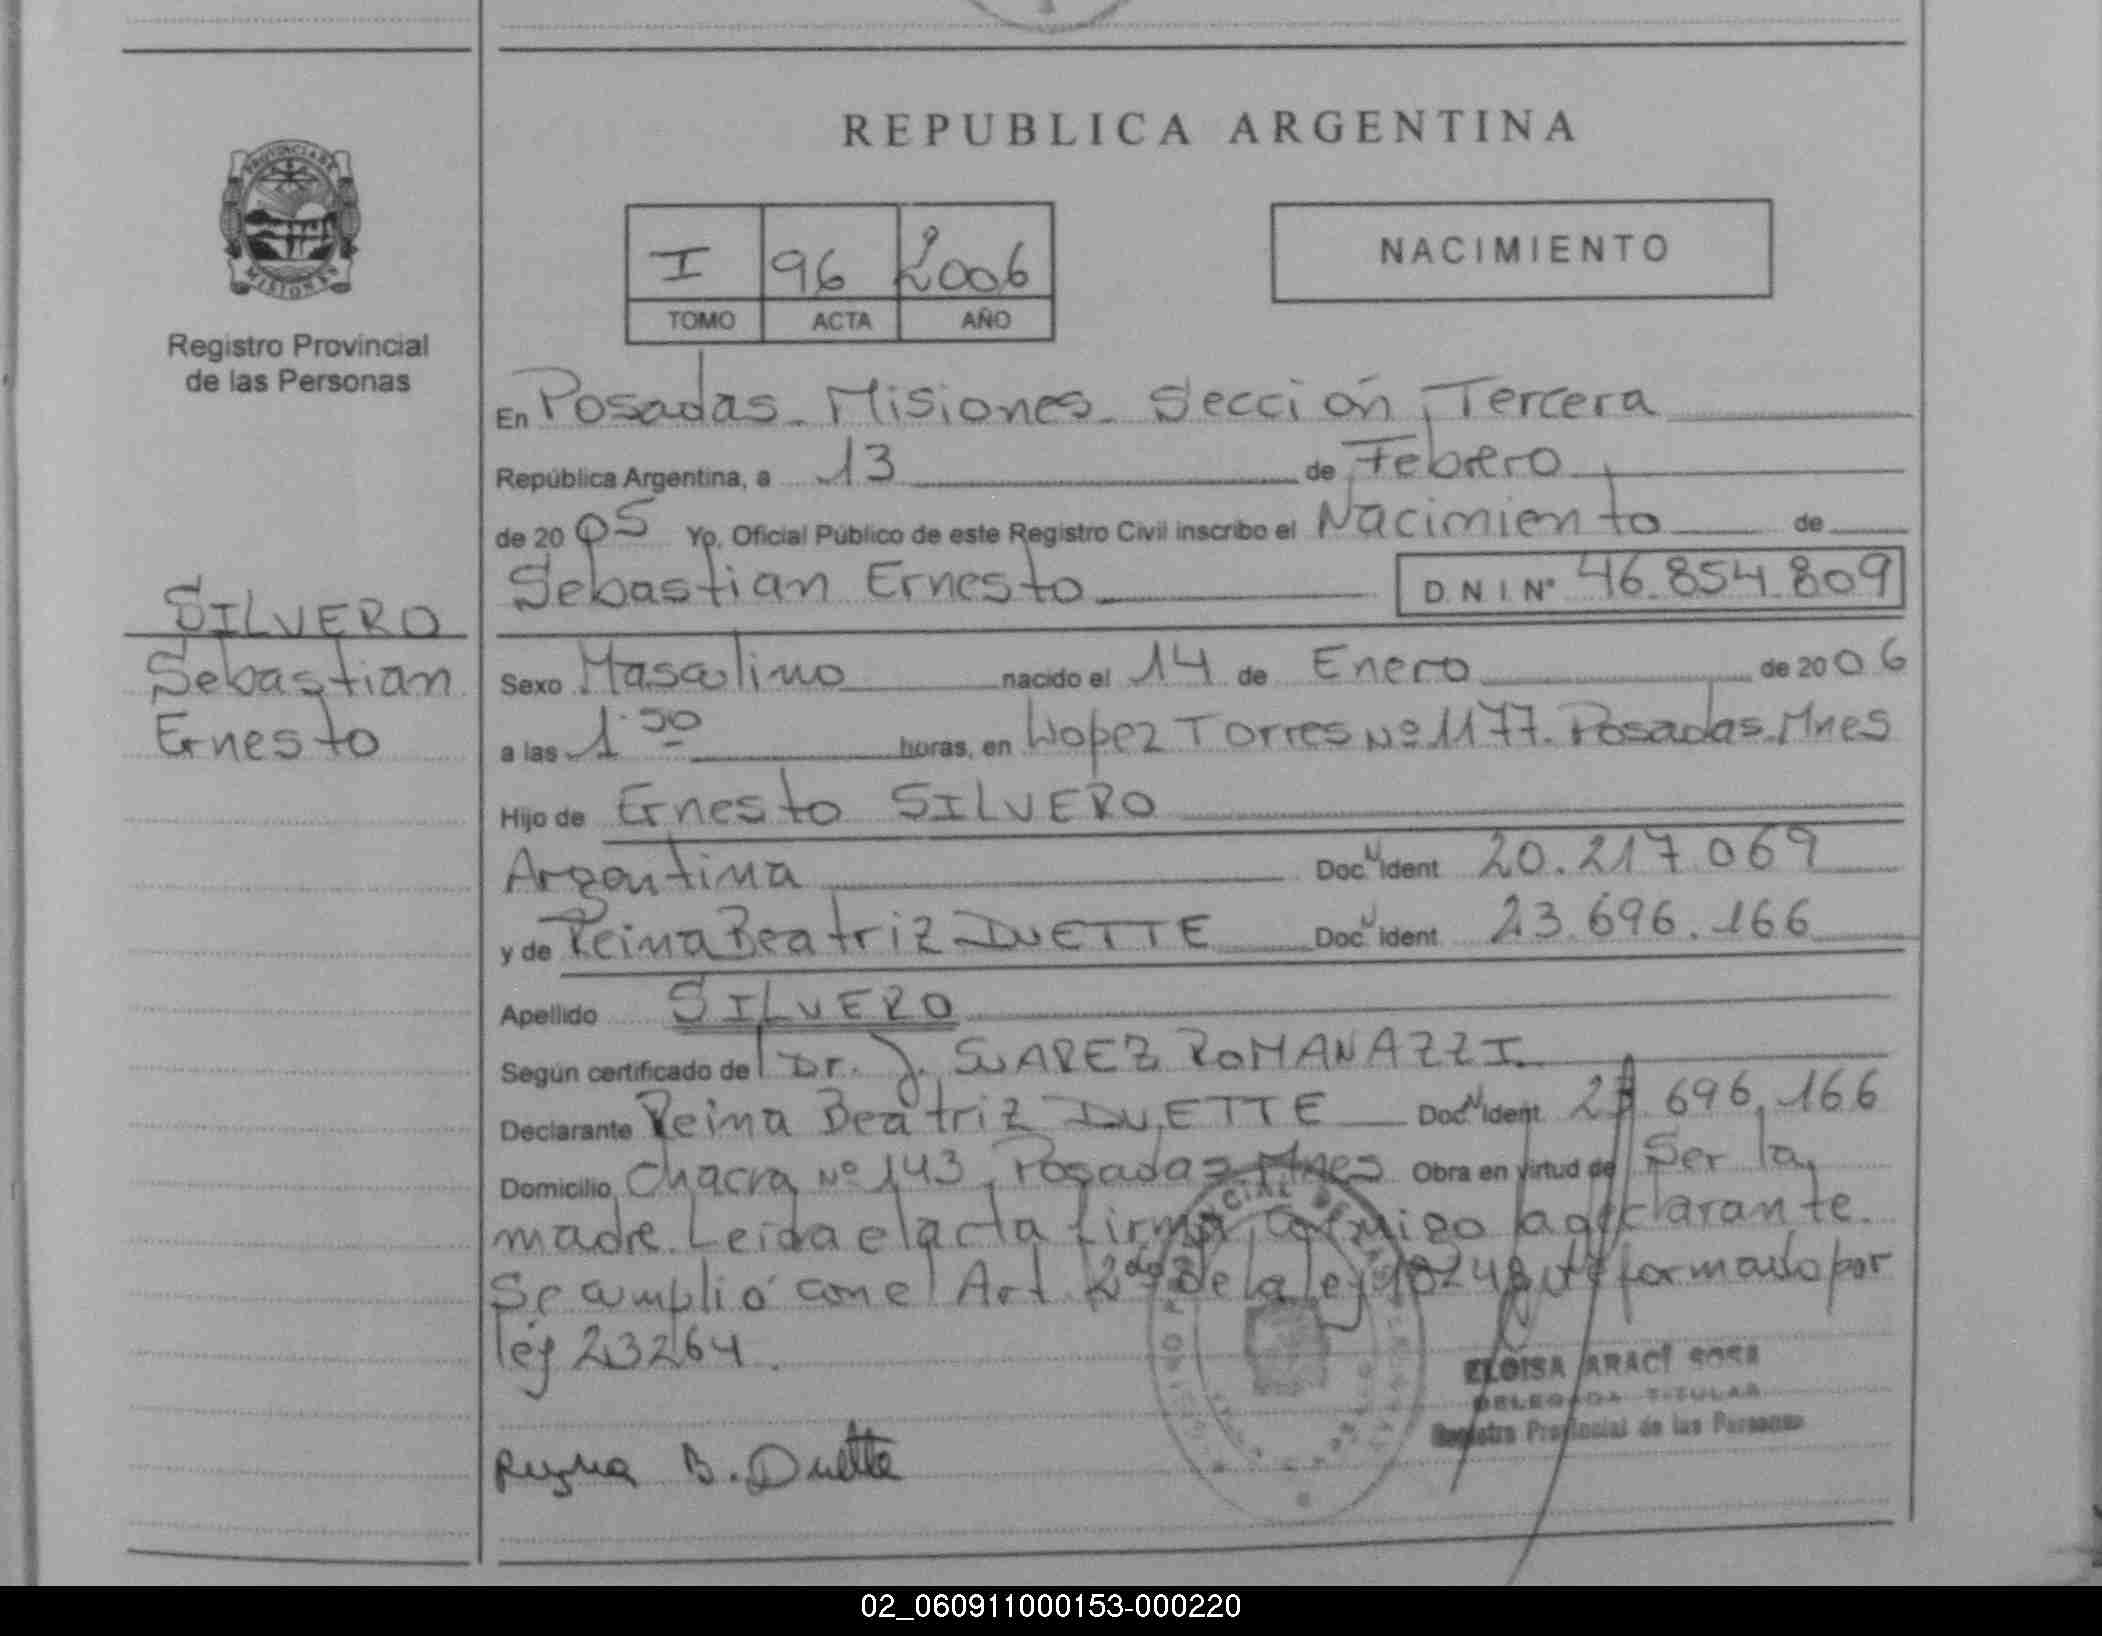 REPUBLICA ARGENTINA
PROVINCIA DE
MISIONES
Registro Provincial
de las Personas
I 96 2006
TOMO ACTA AÑO
NACIMIENTO
En Posadas - Misiones - Sección Tercera
República Argentina, a 13 de Febrero
de 2005 Yo, Oficial Público de este Registro Civil inscribo el Nacimiento de
Sebastian Ernesto D N I Nº 46.854.809
SILVERO
Sebastian
Ernesto
Sexo Masculino nacido el 14 de Enero de 2006
a las 1:50 horas, en Lopez Torres Nº 1177. Posadas. Mnes
Hijo de Ernesto SILVERO
Argentina Doc N Ident 20.217.069
y de Reina Beatriz DUETTE Doc N Ident 23.696.166
Apellido SILVERO
Según certificado de Dr. J. SUAREZ ROMANAZZI.
Declarante Reina Beatriz DUETTE Doc N Ident 23 696.166
Domicilio Chacra Nº 143, Posadas Mnes Obra en virtud de Ser la
madre. Leida el acta firma conmigo la declarante.
Se cumplió con el Art. 2do de la ley 18248 reformado por
ley 23264.
ELOISA ARACI SOSA
DELEGADA TITULAR
Registro Provincial de las Personas
Reyna B. Duette
02_060911000153-000220